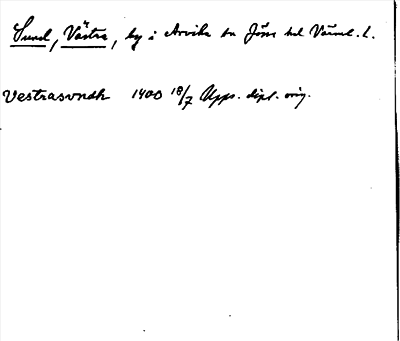 Sund, Västra, by i Arvika sn Jösse hd Värml. l.
Vestrasvndh 1400 18/7 Upps. dipl. orig.